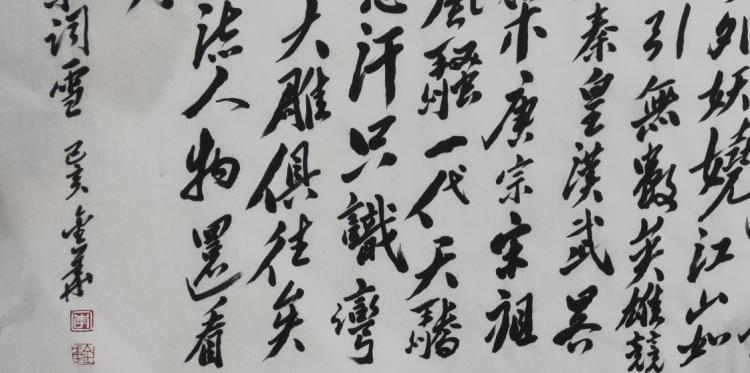 外妖嬈江山如
引無數英雄競
秦皇漢武畧
唐宗宋祖
風騷一代天驕
汗只識彎
大雕俱往矣
流人物還看
詞雪 己亥